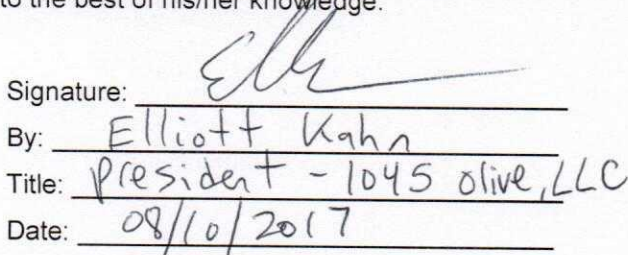 to the best of his/her knowledge.
Signature:
By: Elliott Kahn
Title: President - 1045 olive, LLC
Date: 08/10/2017